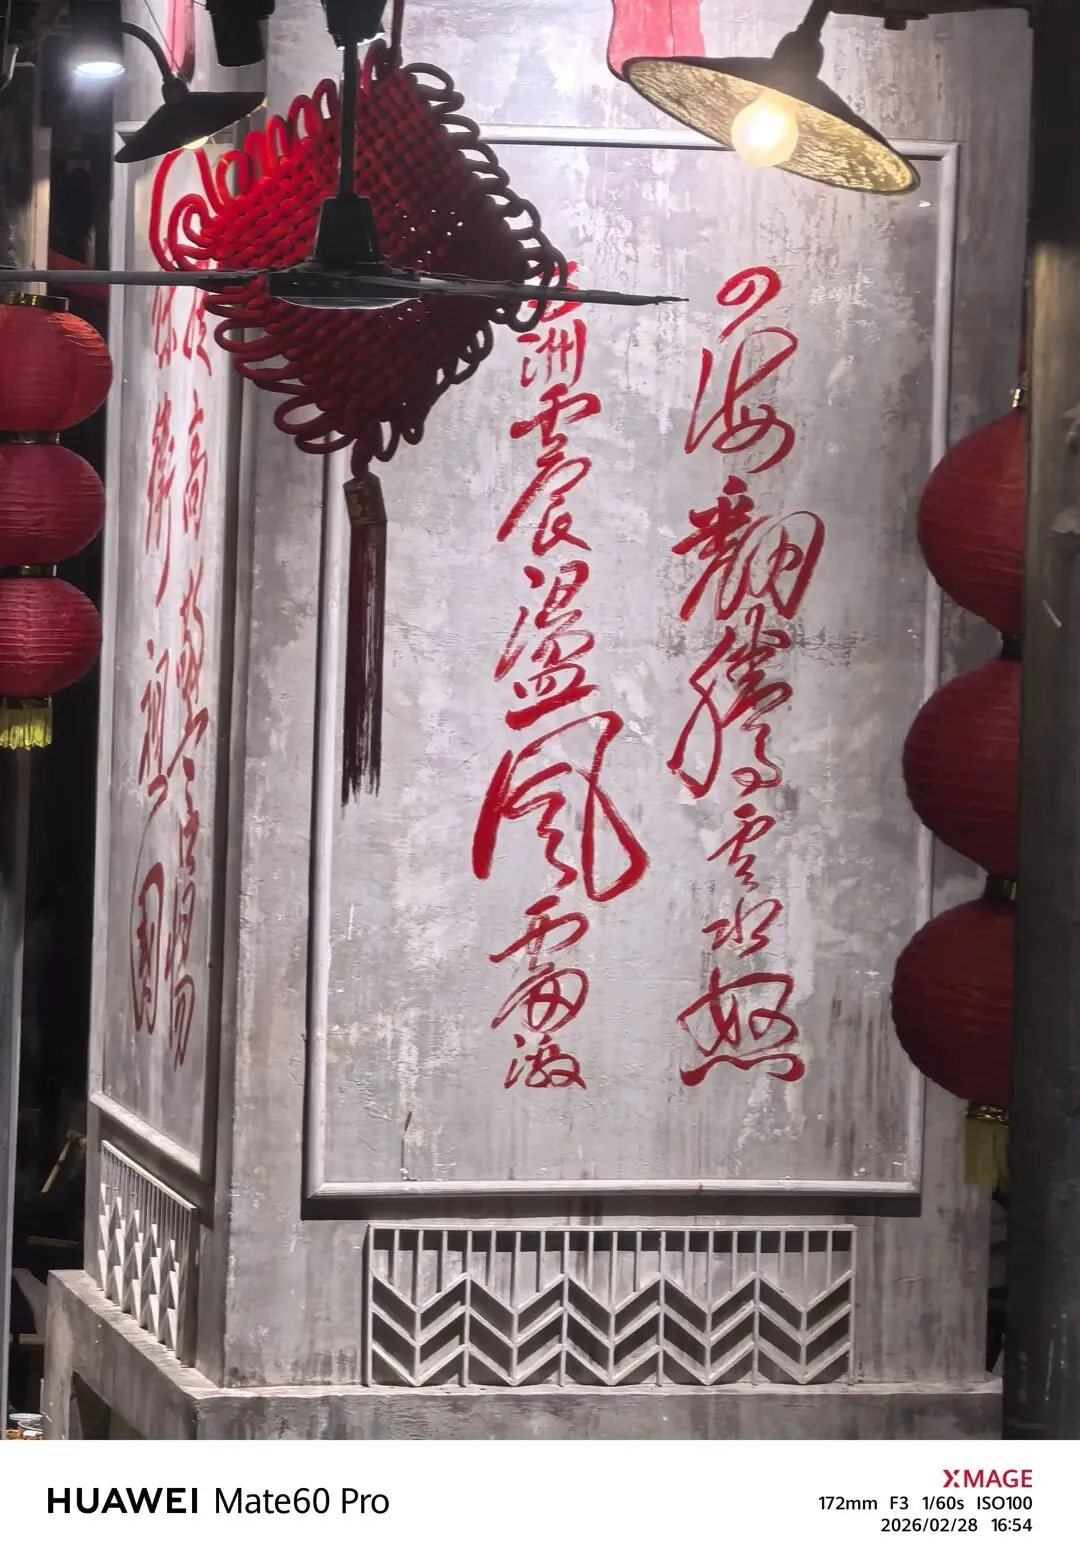 四海翻騰雲水怒
五洲震盪風雷激
提高警惕
保衛祖國
HUAWEI Mate60 Pro
XMAGE
172mm F3 1/60s ISO100
2026/02/28 16:54